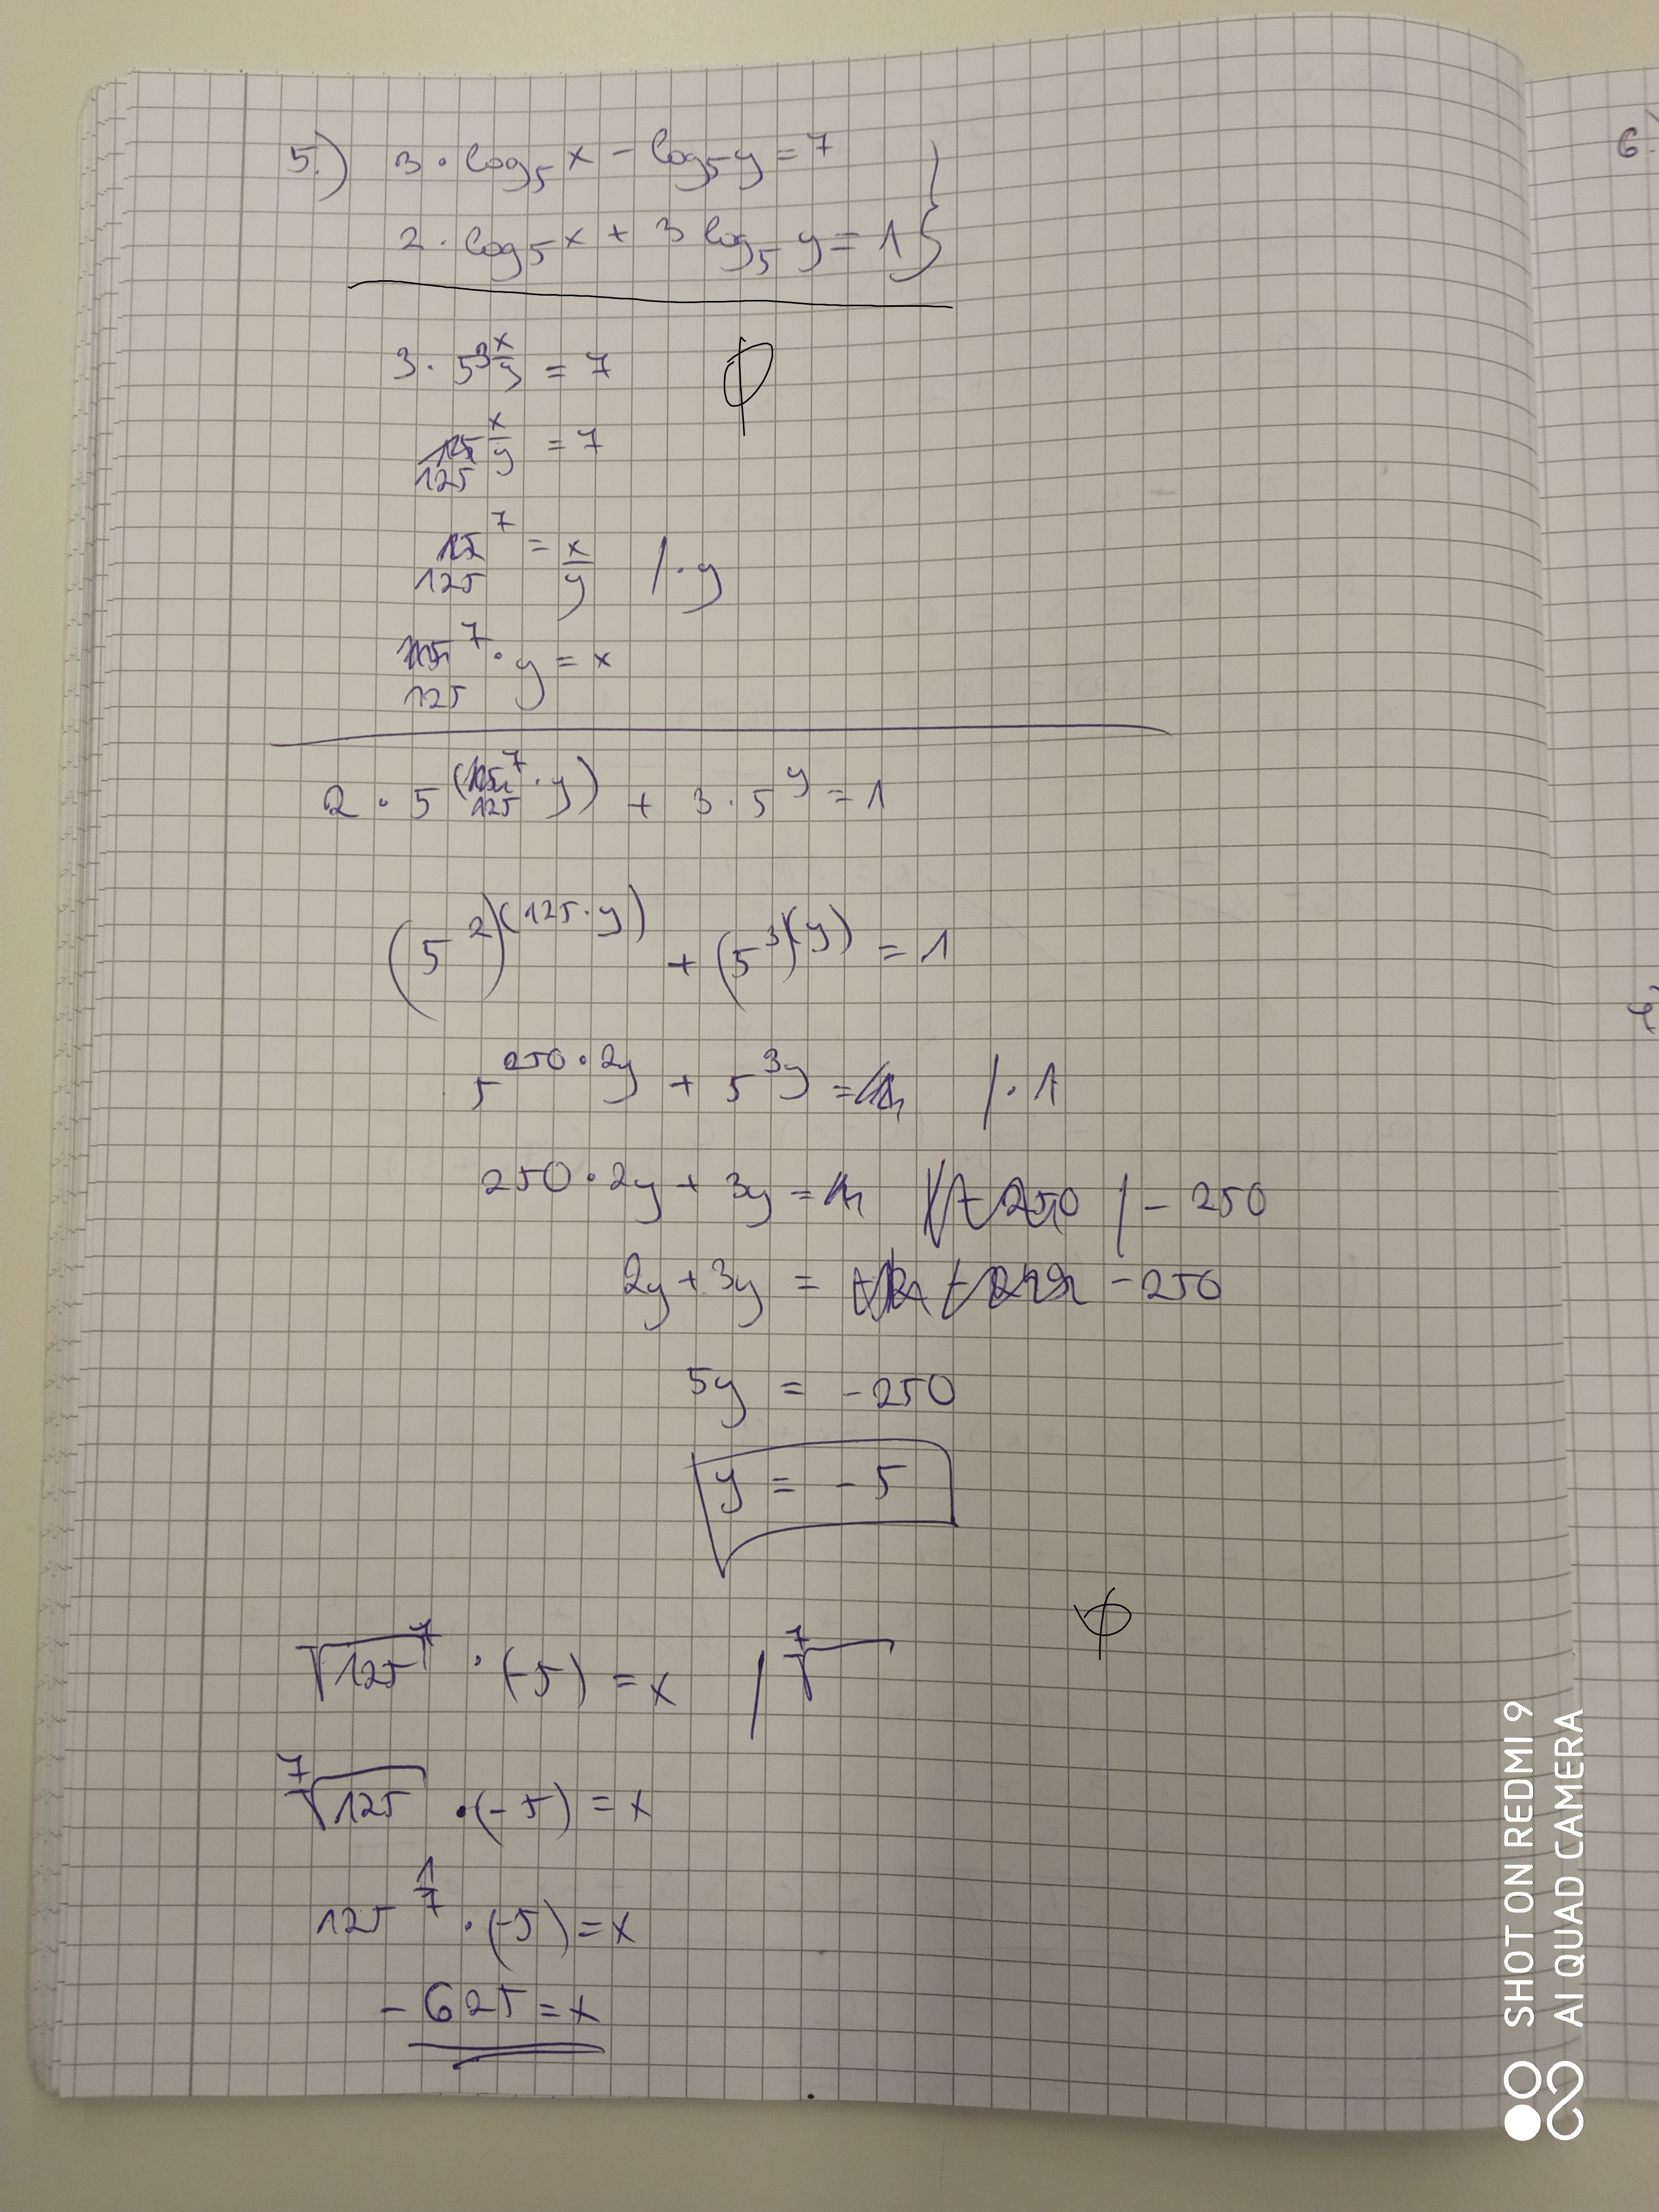 5.) 3 · log₅ x - log₅ y = 7
2 · log₅ x + 3 log₅ y = 1 }
3 · 5^(3 x/y) = 7 ϕ
125^(x/y) = 7
125⁷ = x/y / · y
125⁷ · y = x
2 · 5^(125⁷ · y) + 3 · 5^y = 1
(5²)^(125 · y) + (5³)^(y) = 1
5^(250 · 2y) + 5^(3y) = / · 1
250 · 2y + 3y = / - 250
2y + 3y = - 250
5y = - 250
y = - 5
√125⁷ · (-5) = x / ⁷√ ϕ
⁷√125 · (-5) = x
125^(1/7) · (-5) = x
- 625 = x
6.)
SHOT ON REDMI 9
AI QUAD CAMERA